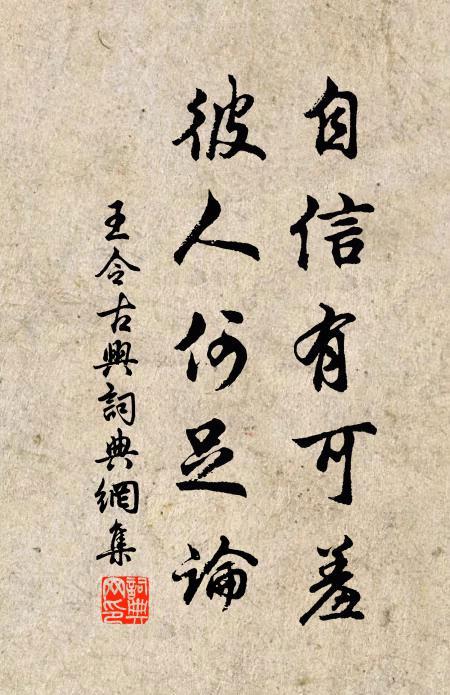 自信有可羞
彼人何足論
王令古典詞典網集
詞典網印